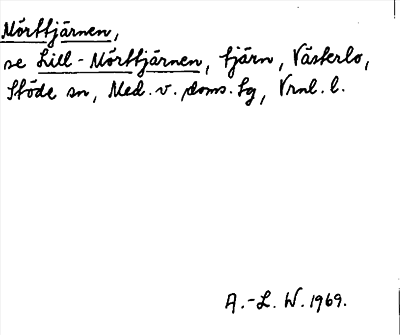 Mörttjärnen,
se Lill-Mörttjärnen, tjärn, Västerlo,
Stöde sn, Med. v. doms. tg, Vrnl. l.
A.-L. W. 1969.